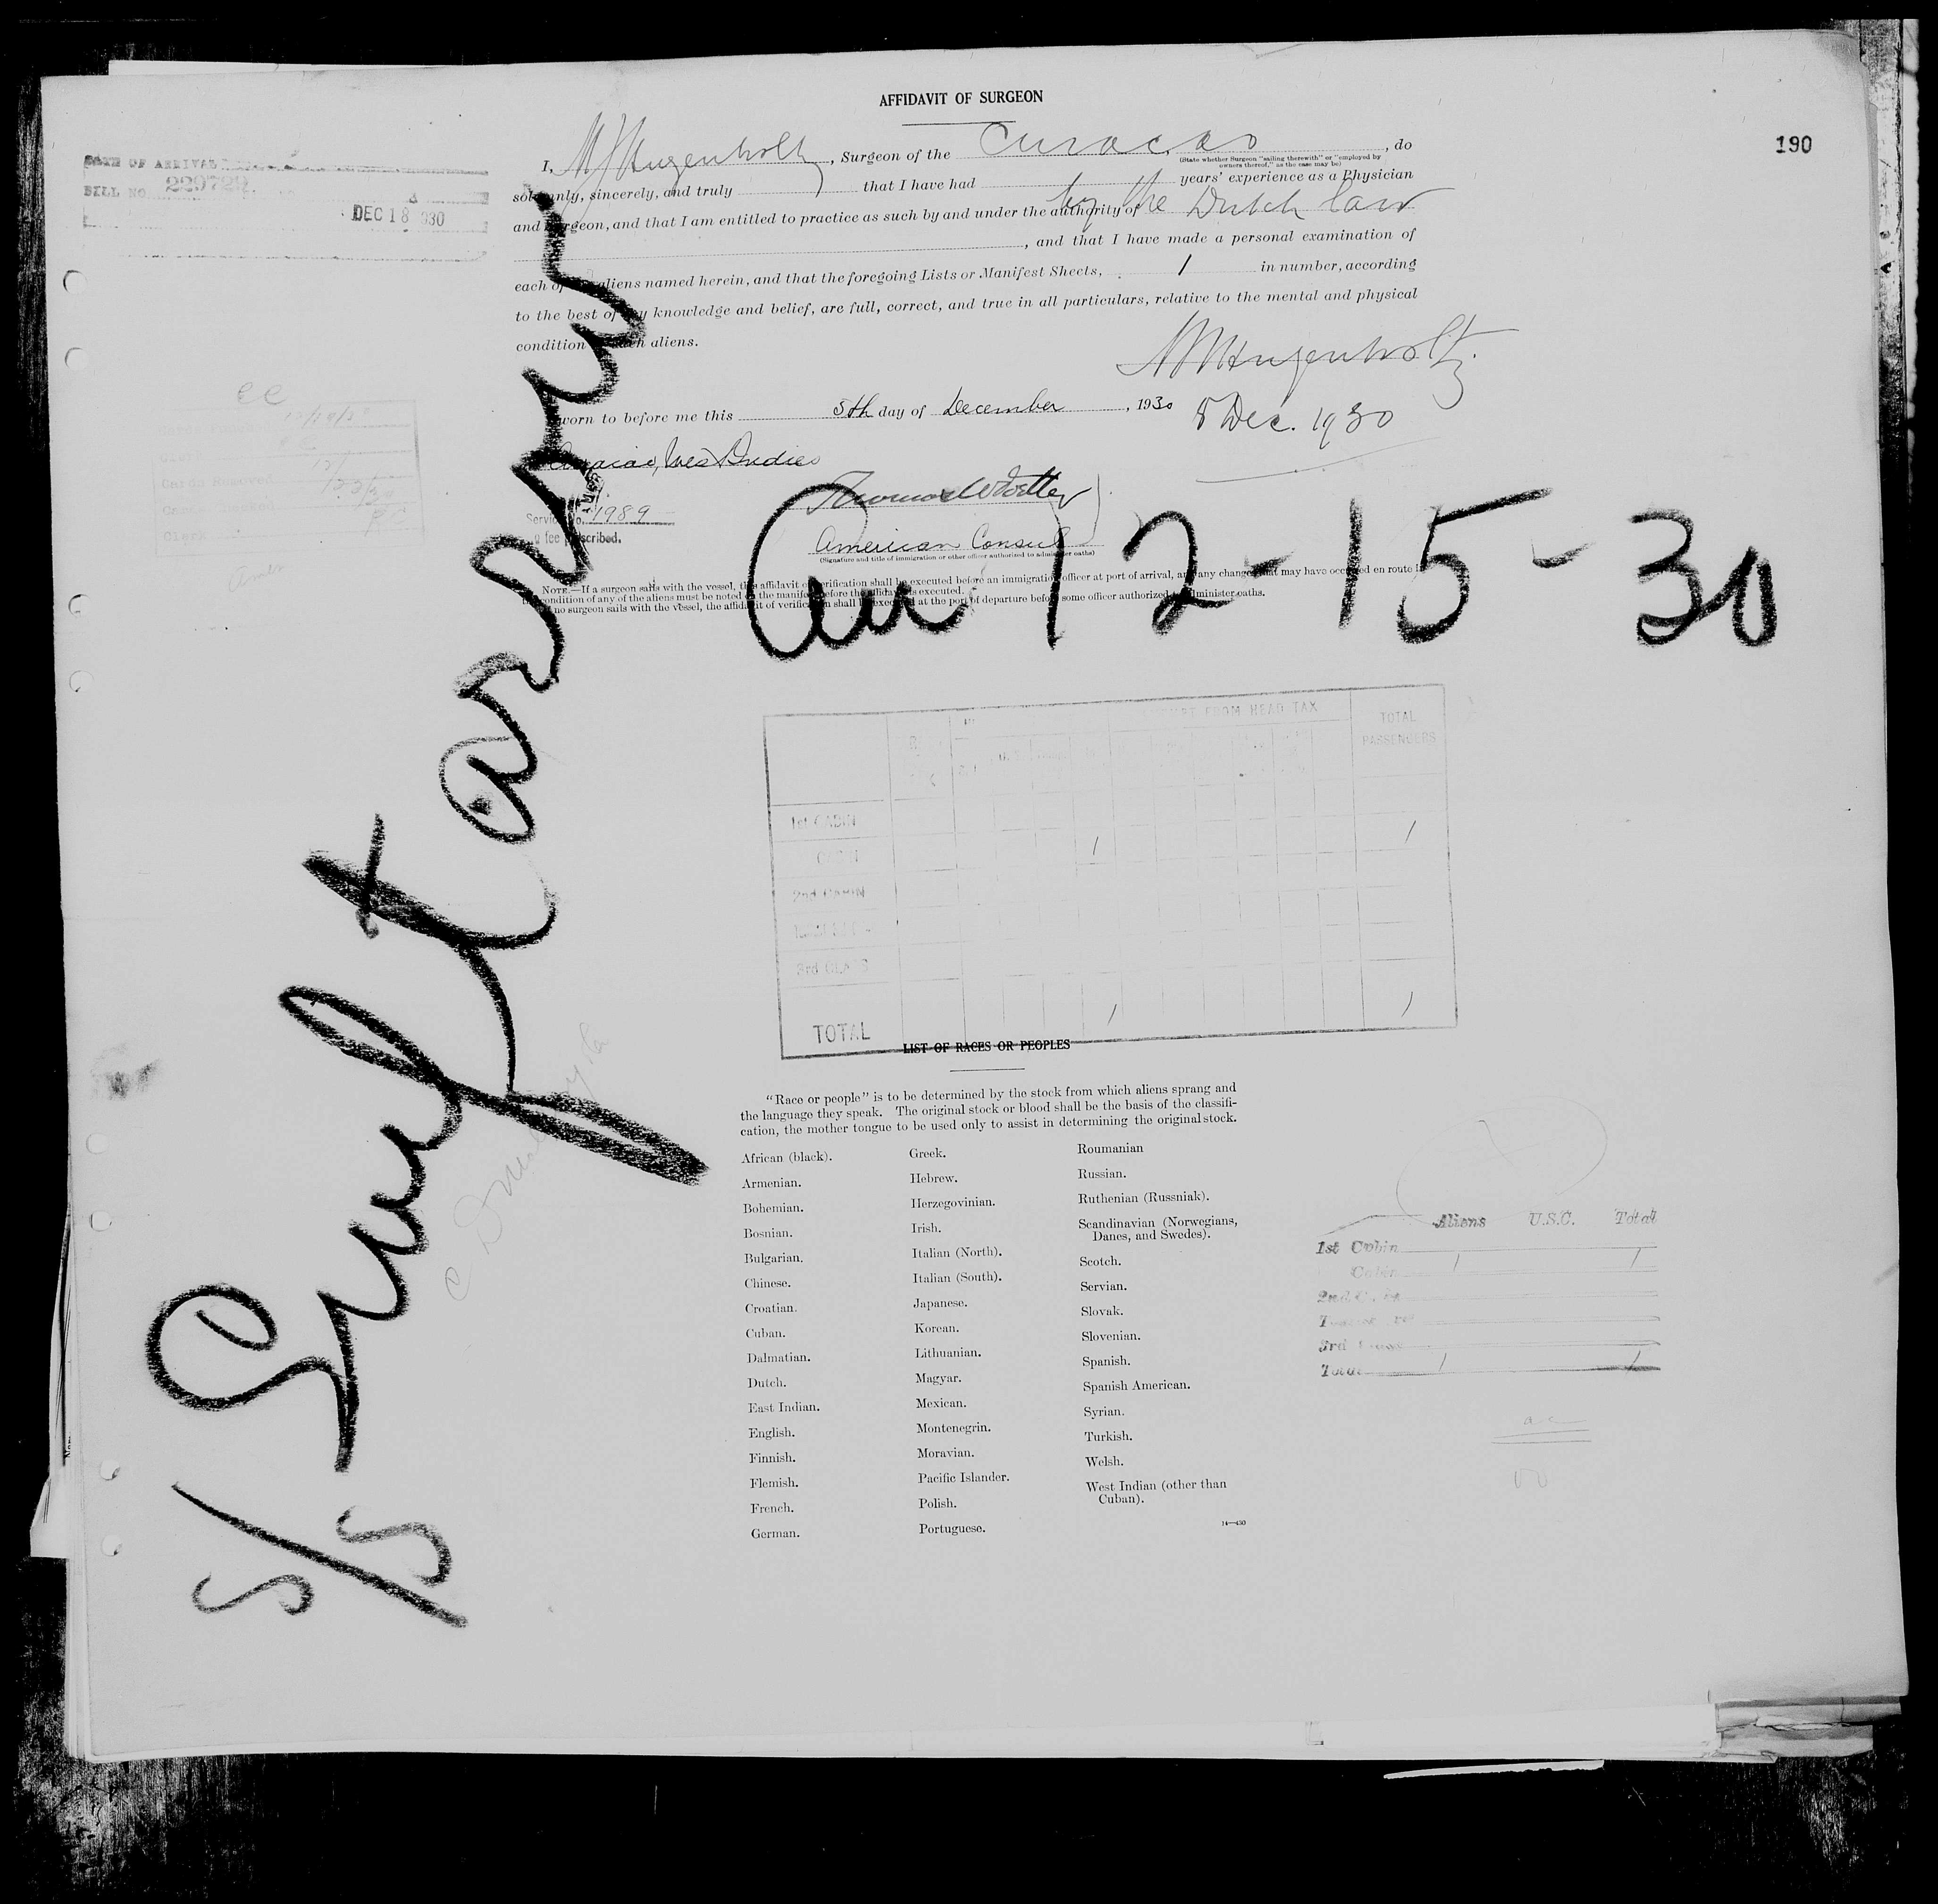 AFFIDAVIT OF SURGEON
190
I, Hugenholtz, Surgeon of the Curacao, do
(State whether Surgeon "sailing therewith" or "employed by
owners thereof," as the case may be)
solemnly, sincerely, and truly that I have had years' experience as a Physician
and Surgeon, and that I am entitled to practice as such by and under the authority of by the Dutch law
, and that I have made a personal examination of
each of aliens named herein, and that the foregoing Lists or Manifest Sheets, 1 in number, according
to the best of my knowledge and belief, are full, correct, and true in all particulars, relative to the mental and physical
condition aliens.
DATE OF ARRIVAL
BILL NO. 229729
DEC 18 1930
Hugenholtz
8 Dec. 1930
Sworn to before me this 8th day of December, 1930
Curacao, West Indies
Service No. 1989
fee prescribed.
American Consul
(Signature and title of immigration or other officer authorized to administer oaths)
NOTE.—If a surgeon sails with the vessel, this affidavit of verification shall be executed before an immigration officer at port of arrival, and any changes that may have occurred en route in
the condition of any of the aliens must be noted on the manifest before the affidavit is executed.
If no surgeon sails with the vessel, the affidavit of verification shall be executed at the port of departure before some officer authorized to administer oaths.
12-15-30
S/S
ee
Cards Removed
Clerk
EXEMPT FROM HEAD TAX
TOTAL
PASSENGERS
1st CABIN 1
CABIN 1
2nd CABIN
3rd CLASS
TOTAL 1 1
LIST OF RACES OR PEOPLES
"Race or people" is to be determined by the stock from which aliens sprang and
the language they speak. The original stock or blood shall be the basis of the classifi-
cation, the mother tongue to be used only to assist in determining the original stock.
African (black).
Armenian.
Bohemian.
Bosnian.
Bulgarian.
Chinese.
Croatian.
Cuban.
Dalmatian.
Dutch.
East Indian.
English.
Finnish.
Flemish.
French.
German.
Greek.
Hebrew.
Herzegovinian.
Irish.
Italian (North).
Italian (South).
Japanese.
Korean.
Lithuanian.
Magyar.
Mexican.
Montenegrin.
Moravian.
Pacific Islander.
Polish.
Portuguese.
Roumanian
Russian.
Ruthenian (Russniak).
Scandinavian (Norwegians,
Danes, and Swedes).
Scotch.
Servian.
Slovak.
Slovenian.
Spanish.
Spanish American.
Syrian.
Turkish.
Welsh.
West Indian (other than
Cuban).
14—430
Aliens U.S.C. Total
1st Cabin 1 1
Cabin
2nd Cabin
3rd Class
Total 1 1